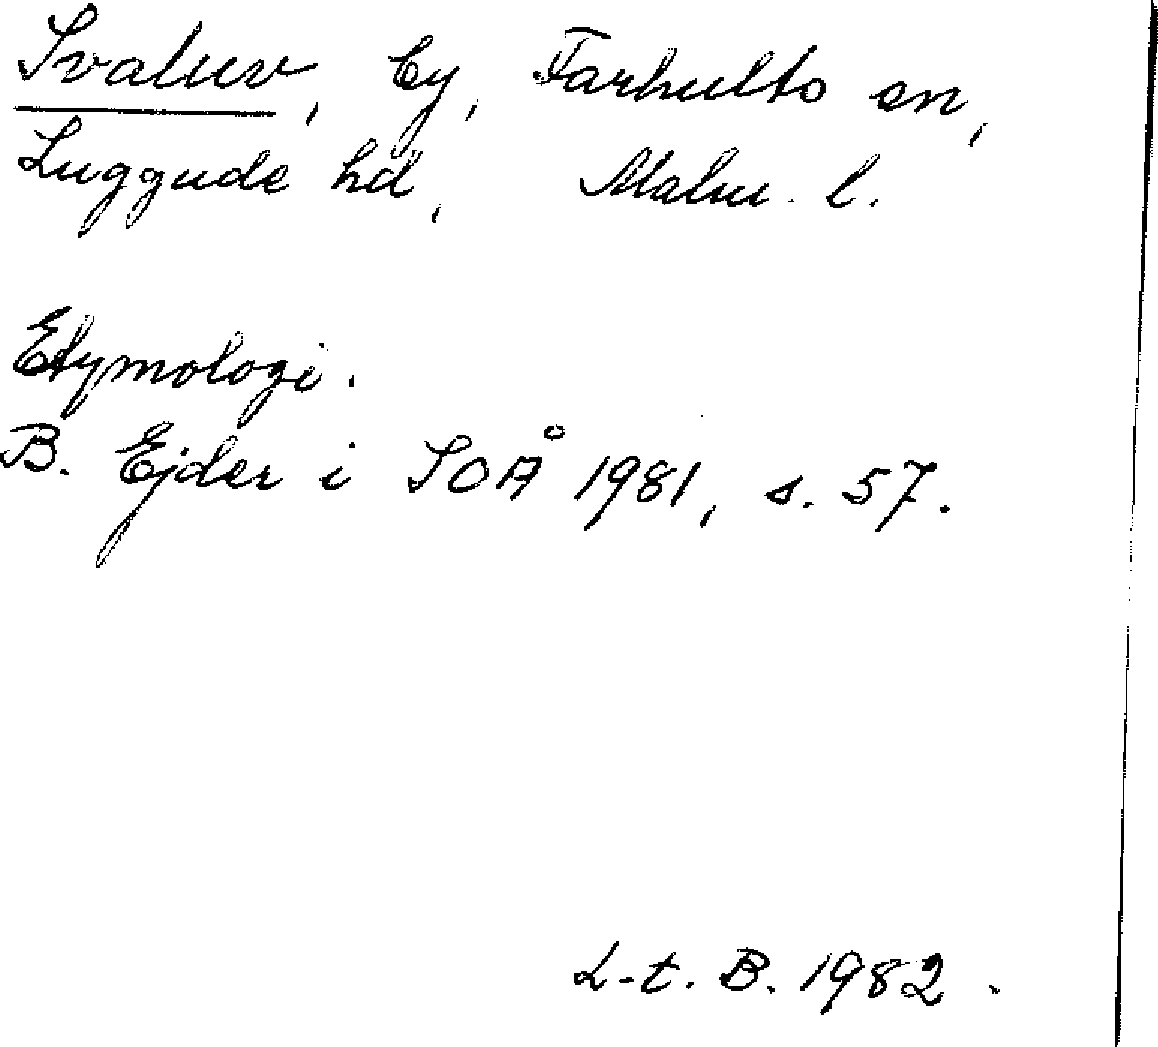 Svaluv, by, Farhults sn,
Luggude hd, Malm. l.
Etymologi.
B. Ejder i SOÅ 1981, s. 57.
L-t. B. 1982.